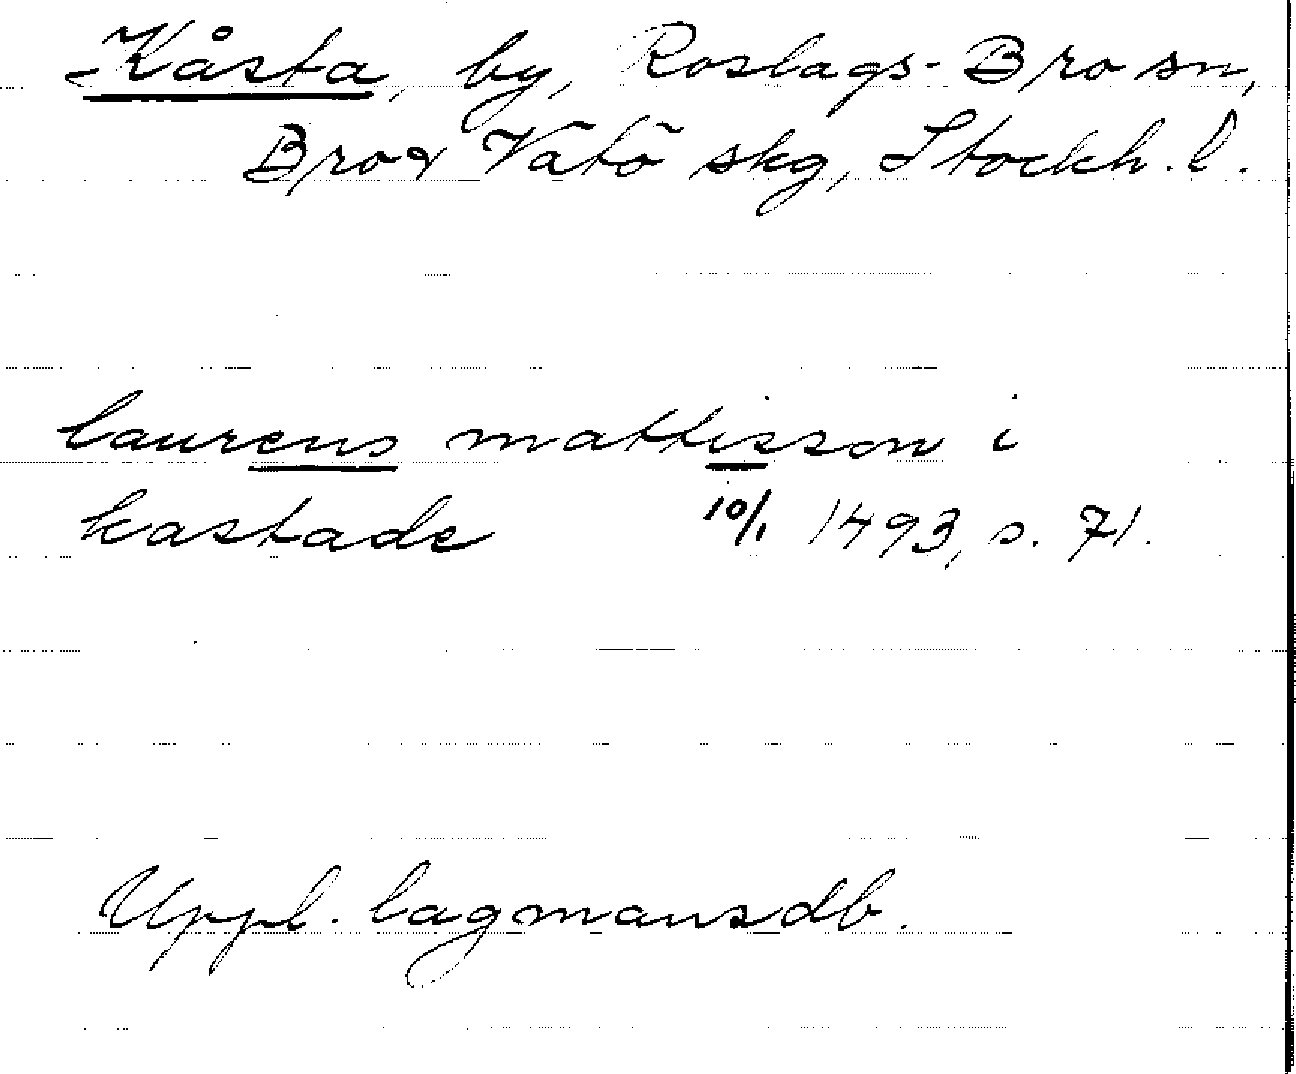 Kåsta, by, Roslags-Bro sn,
Bro o Vätö skg, Stockh. l.
laurens mattisson i
kastade 10/1 1493, s. 71.
Uppl. lagmansdb.